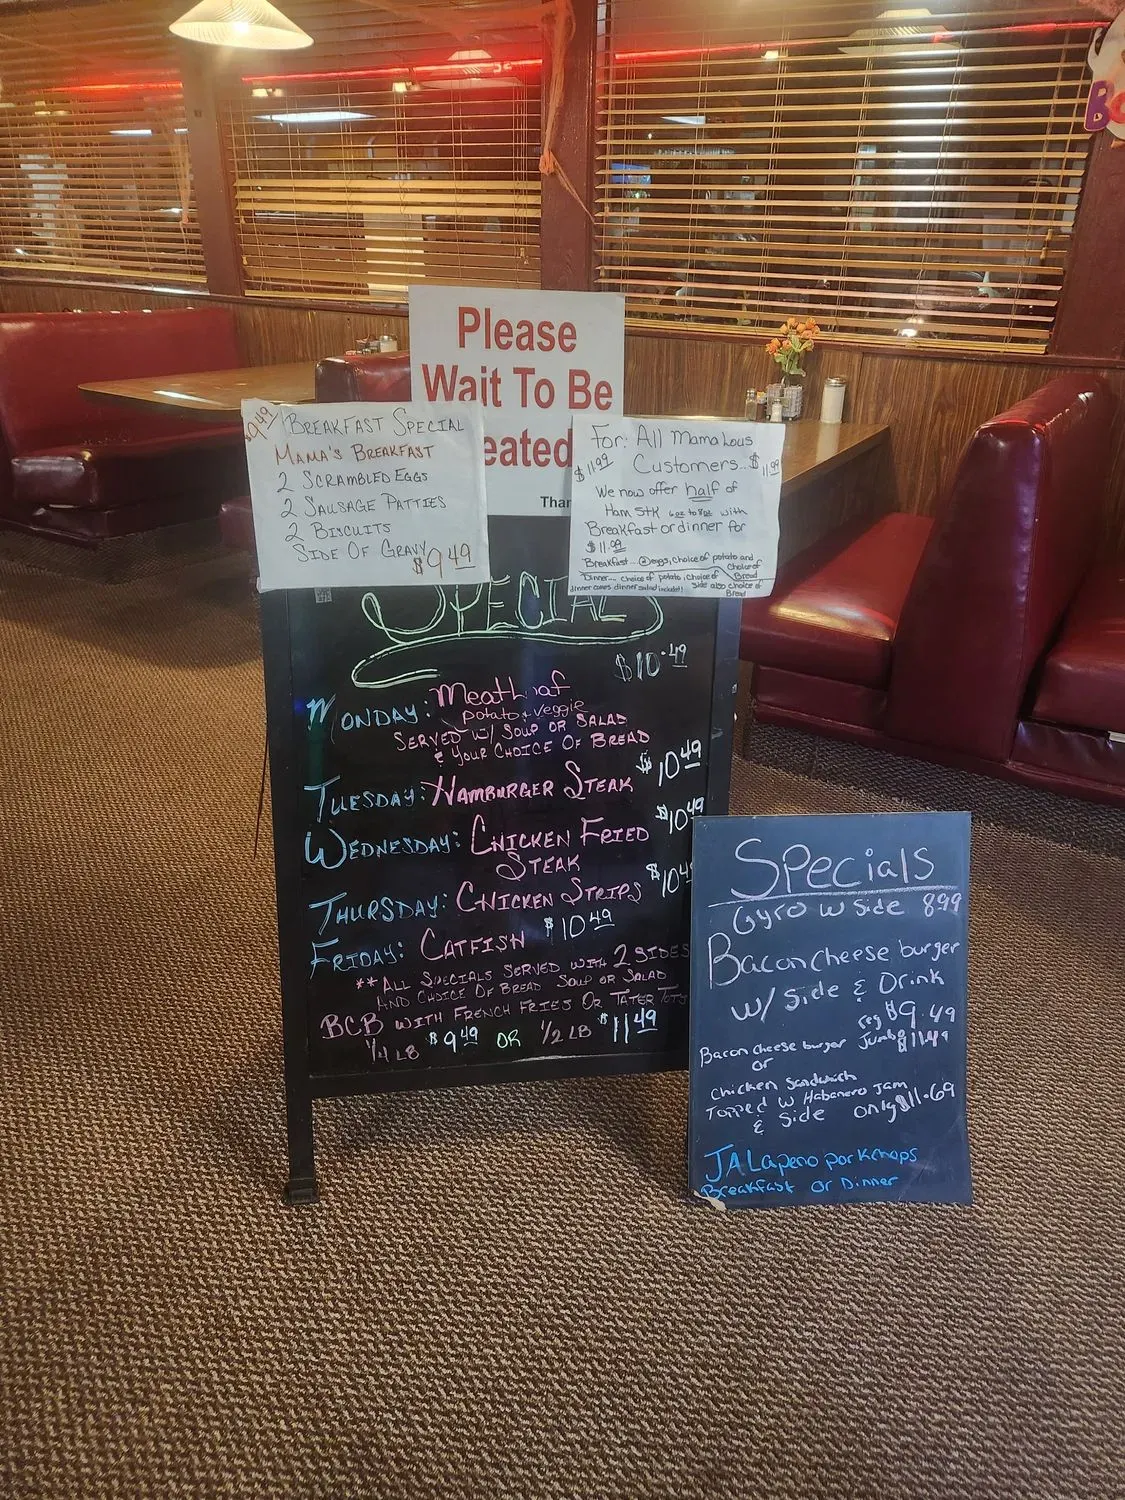 Please
Wait To Be
eated
Than
$9.49
BREAKFAST SPECIAL
MAMA'S BREAKFAST
2 SCRAMBLED EGGS
2 SAUSAGE PATTIES
2 BISCUITS
SIDE OF GRAVY
$9.49
For: All Mama Lous
$11.99 Customers... $11.99
We now offer half of
Ham Stk 6oz to 8oz with
Breakfast or dinner for
$11.99
Breakfast... 2 eggs, choice of potato and
Choice of
Bread
Dinner... choice of potato, choice of
Side also choice of
dinner comes dinner salad included!!
Bread
SPECIALS
$10.49
MONDAY: MEATLOAF
potato + veggie
SERVED W/ SOUP OR SALAD
& YOUR CHOICE OF BREAD
$10.49
TUESDAY: HAMBURGER STEAK
$10.49
WEDNESDAY: CHICKEN FRIED
STEAK
$10.49
THURSDAY: CHICKEN STRIPS
$10.49
FRIDAY: CATFISH
**ALL SPECIALS SERVED WITH 2 SIDES
AND CHOICE OF BREAD SOUP OR SALAD
BCB WITH FRENCH FRIES OR TATER TOTS
1/4 LB $9.49 OR 1/2 LB $11.49
Specials
Gyro w Side 8.99
Bacon cheese burger
w/ Side & Drink
reg $9.49
Bacon cheese burger Jumbo $11.49
or
Chicken Sandwich
Topped w Habanero Jam
& Side only $11.69
JALapeno porkchops
Breakfast or Dinner